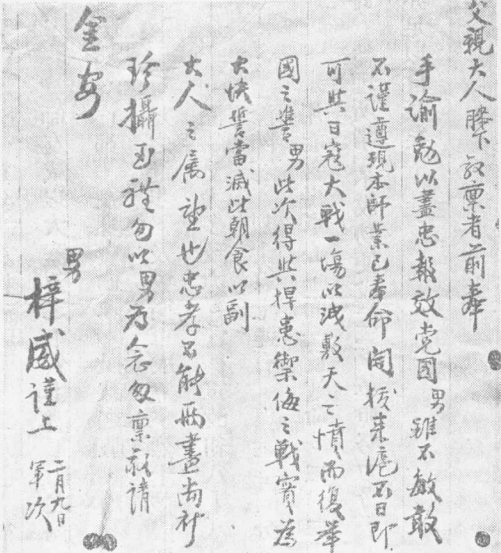 父親大人膝下敬禀者前奉
手諭勉以盡忠報效党國男雖不敏敢
不謹遵現本師業已奉命開拔来滬不日即
可與日寇大戰一塲以洩敷天之憤而復舉
國之讐男此次得與捍患禦侮之戰實為
大快誓當滅此朝食以副
大人之属望也忠孝不能兩盡尚祈
珍攝玉體勿以男為念匆禀敬請
金安
男
梓威謹上
二月九日
軍次